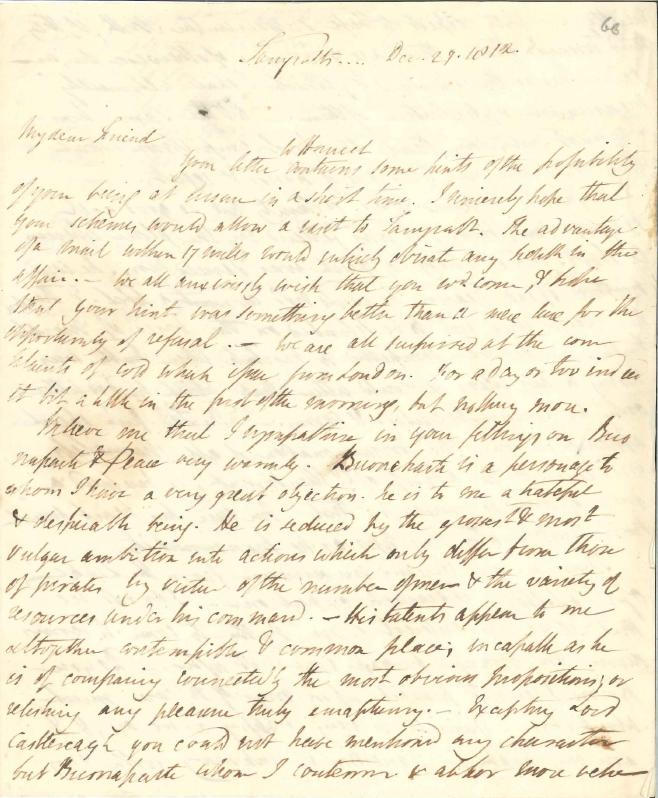 66
Tanyrallt.... Dec. 27. 1812.
My dear Friend
to Harriet
Your letter contains some hints of the possibility
of your being at in a short time. I sincerely hope that
your schemes would allow a visit to Tanyrallt. The advantage
of a mail within 17 miles would entirely obviate any in the
affair. — We all anxiously wish that you wd. come, & hope
that your hint was something better than a mere lure for the
opportunity of refusal. — We are all surprised at the com
plaints of cold which issue from London. For a day or two indeed
it bit a little in the first of the mornings, but nothing more.
Believe me that I sympathise in your feelings on Buo
naparte & Peace very warmly. Buonaparte is a personage to
whom I have a very great objection. he is to me a hateful
& despicable being. He is reduced by the grossest & most
vulgar ambition into actions which only differ from those
of pirates by virtue of the number of men & the variety of
resources under his command. — His talents appear to me
altogether contemptible & common place; incapable as he
is of comparing connectedly the most obvious propositions, or
relishing any pleasure truly enrapturing. — Excepting Lord
Castlereagh you could not have mentioned any character
but Buonaparte whom I contemn & abhor more vehe